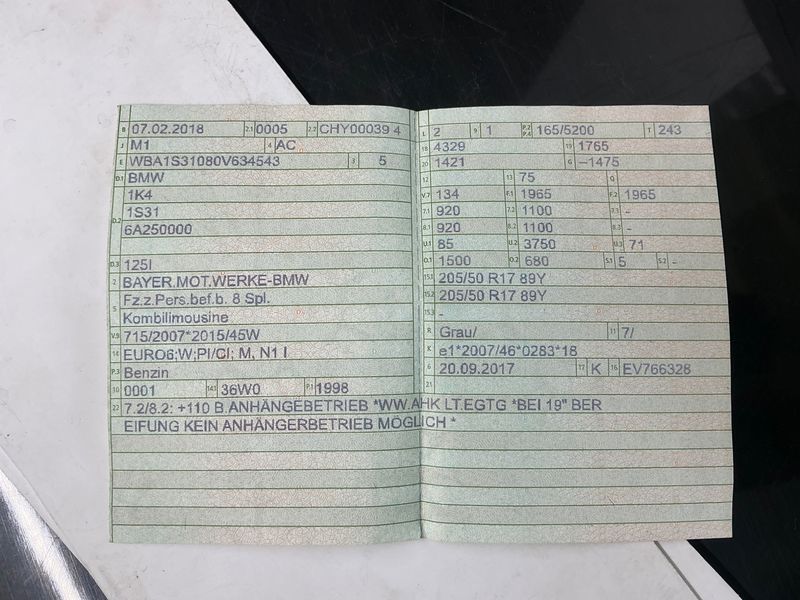 B 07.02.2018 2.1 0005 2.2 CHY00039 4
J M1 4 AC
E WBA1S31080V634543 3 5
D.1 BMW
1K4
D.2 1S31
6A250000
D.3 125I
2 BAYER.MOT.WERKE-BMW
Fz.z.Pers.bef.b. 8 Spl.
5 Kombilimousine
V.9 715/2007*2015/45W
14 EURO6;W;PI/CI; M, N1 I
P.3 Benzin
10 0001 14.1 36W0 P.1 1998
L 2 9 1 P.2 P.4 165/5200 T 243
18 4329 19 1765
20 1421 G –1475
12 13 75 Q
V.7 134 F.1 1965 F.2 1965
7.1 920 7.2 1100 7.3 -
8.1 920 8.2 1100 8.3 -
U.1 85 U.2 3750 U.3 71
O.1 1500 O.2 680 S.1 5 S.2 -
15.1 205/50 R17 89Y
15.2 205/50 R17 89Y
15.3 -
R Grau/ 11 7/
K e1*2007/46*0283*18
6 20.09.2017 17 K 16 EV766328
21
22 7.2/8.2: +110 B ANHÄNGEBETRIEB *WW.AHK LT.EGTG *BEI 19" BER
EIFUNG KEIN ANHÄNGERBETRIEB MÖGLICH *